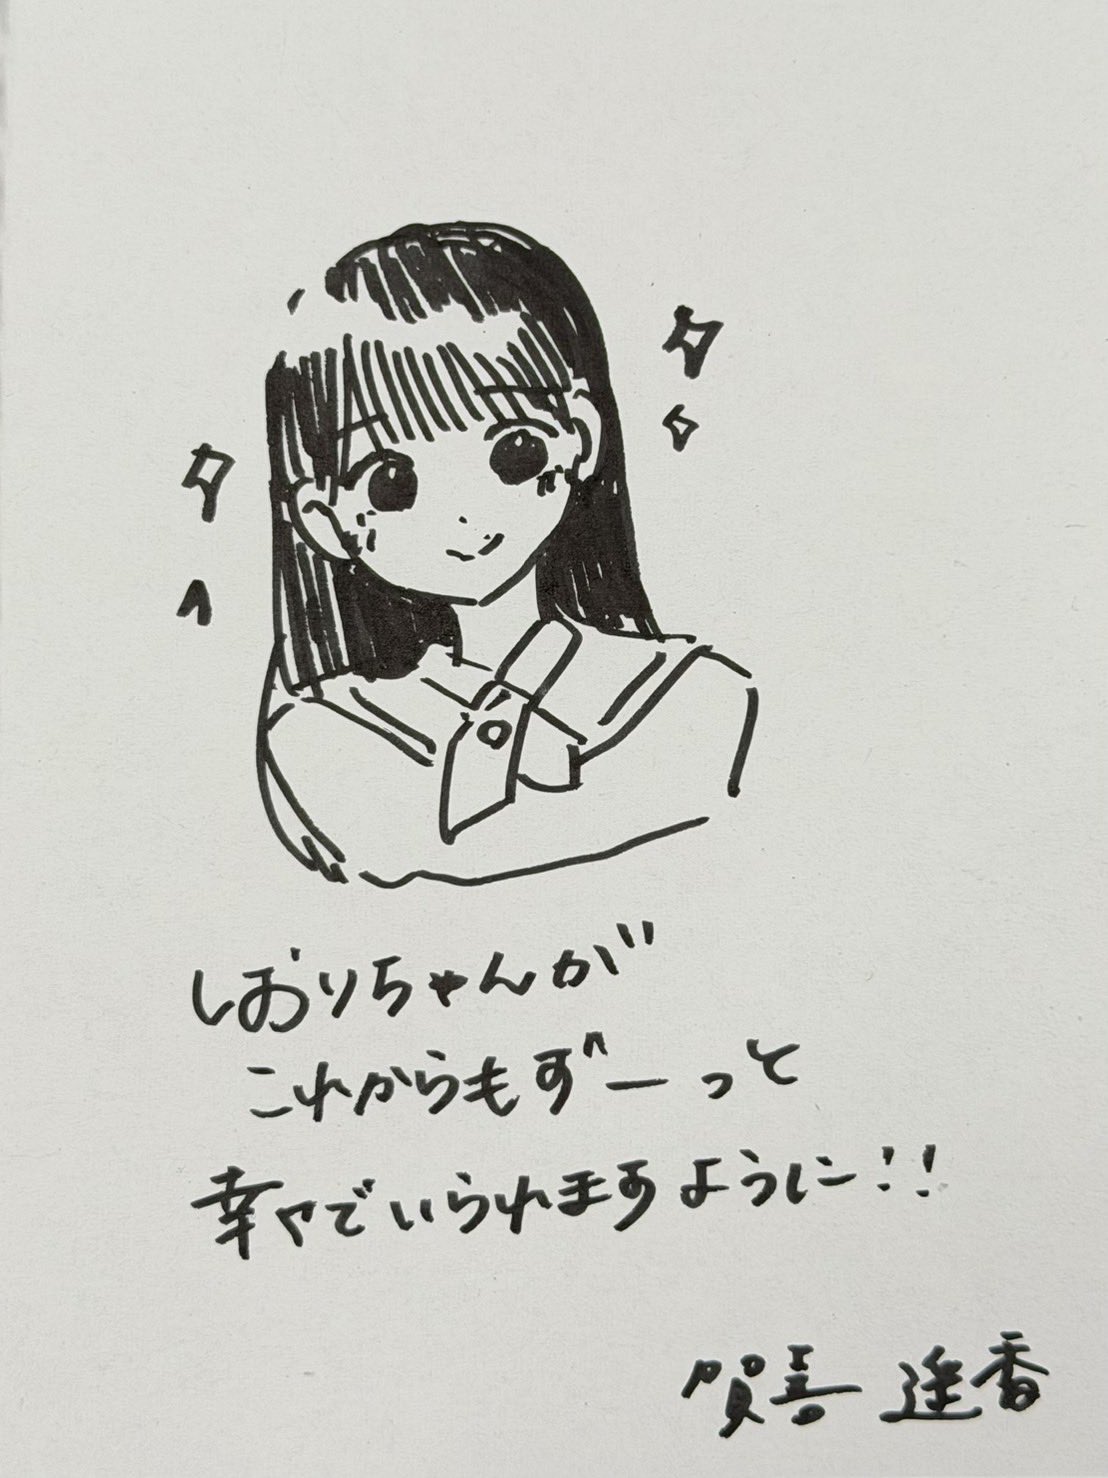 しおりちゃんが
これからもずーっと
幸せでいられますように!!
賀喜 遥香